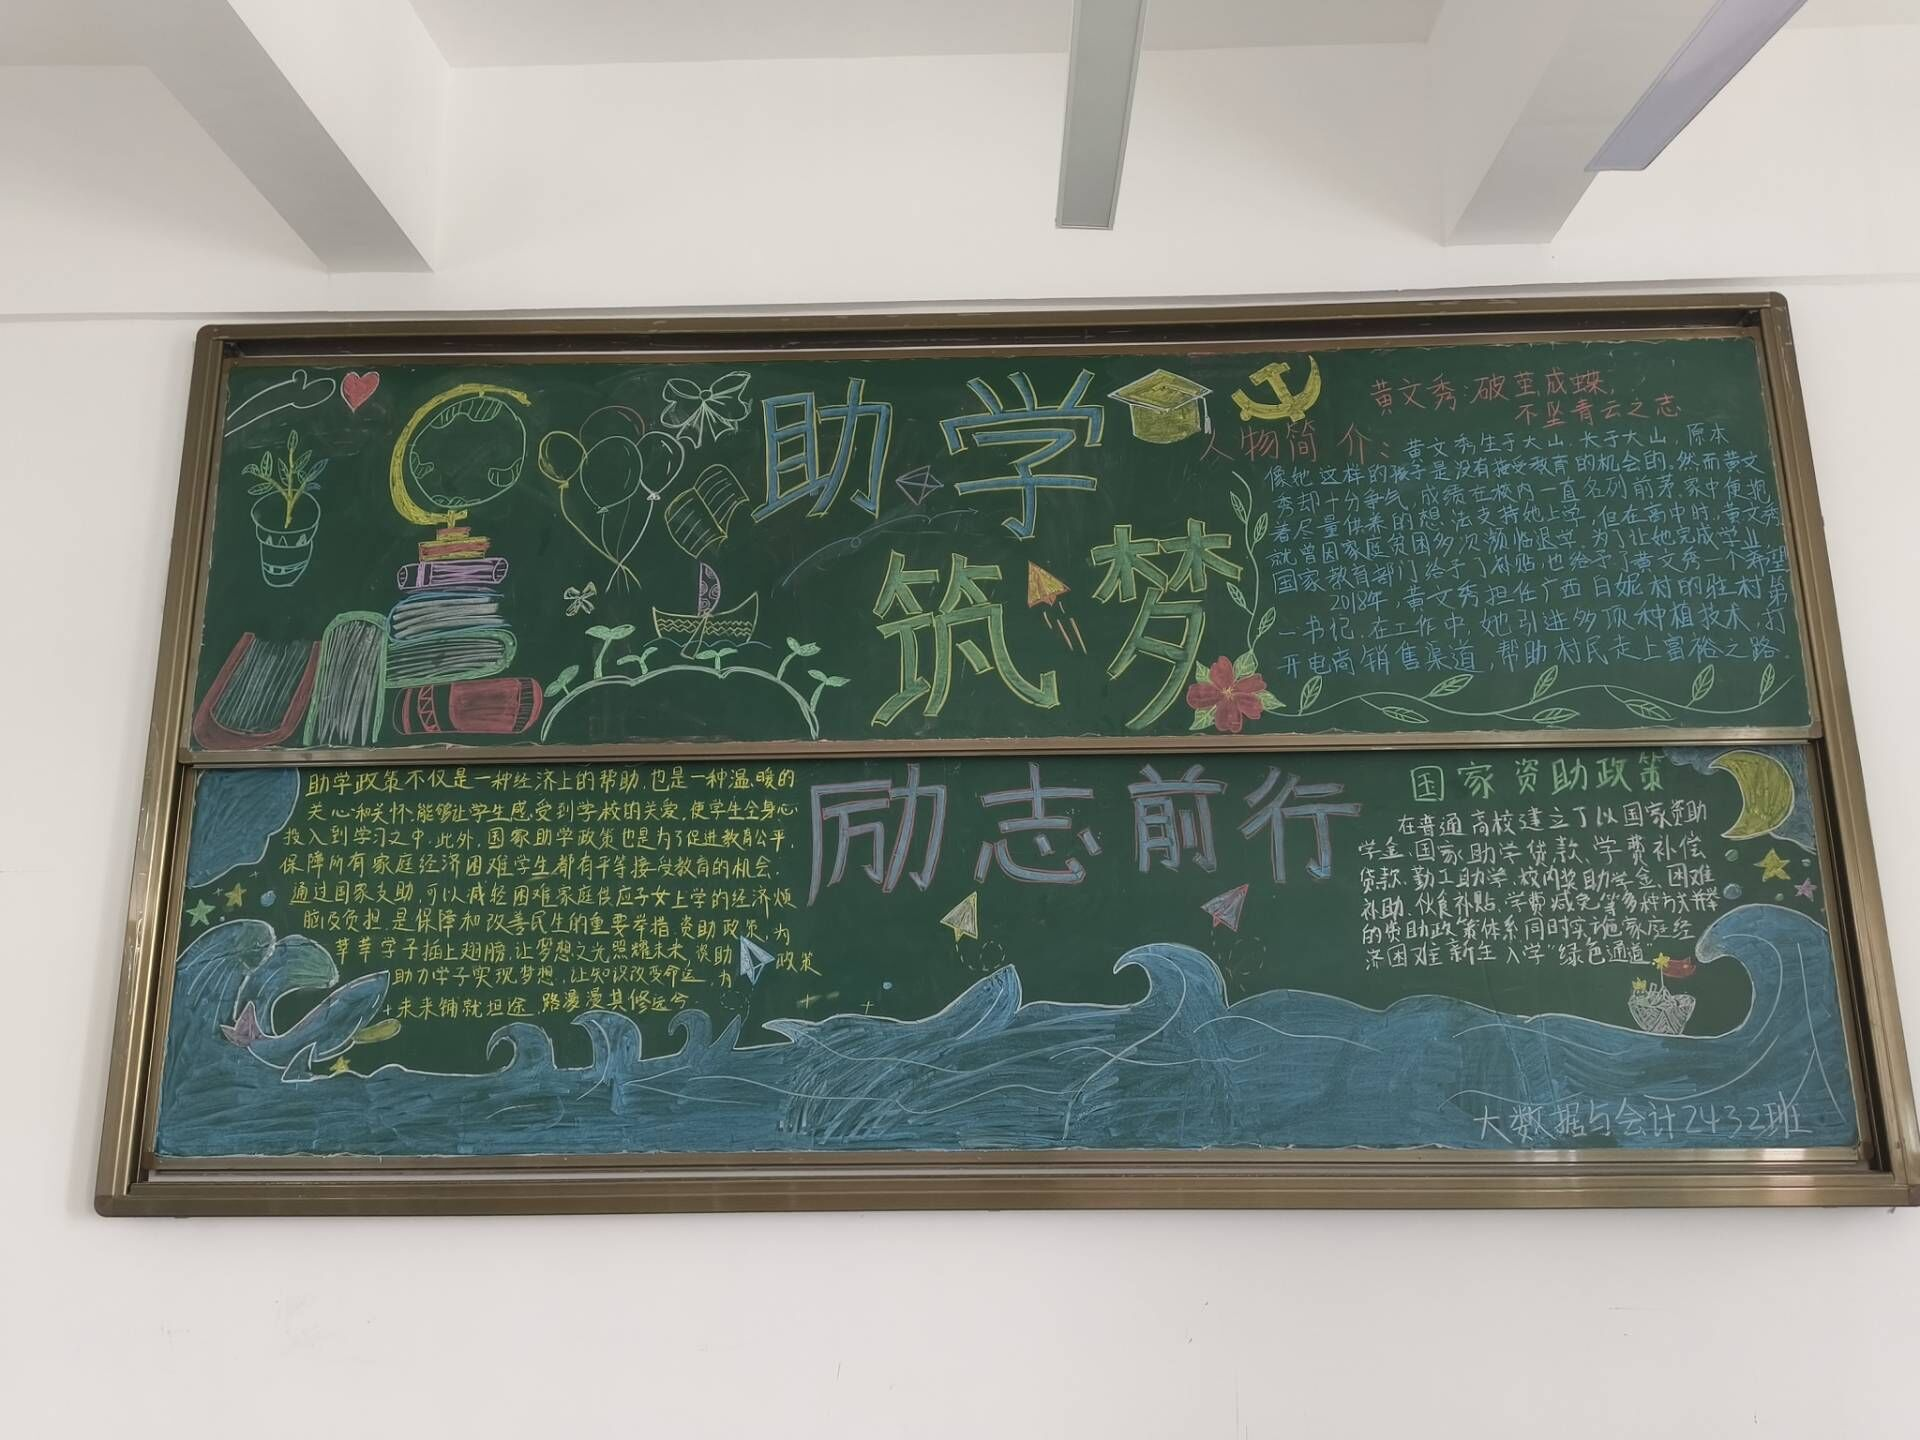 助学
筑梦
黄文秀:破茧成蝶,
不坠青云之志
人物简介:
黄文秀生于大山,长于大山,原本
像她这样的孩子是没有接受教育的机会的。然而黄文
秀却十分争气,成绩在校内一直名列前茅,家中便抱
着尽量供养的想法支持她上学,但在高中时,黄文秀
就曾因家庭贫困多次濒临退学,为了让她完成学业
国家教育部门给予了补贴,也给予了黄文秀一个希望
2018年,黄文秀担任广西百妮村的驻村第
一书记,在工作中,她引进多项种植技术,打
开电商销售渠道,帮助村民走上富裕之路.
助学政策不仅是一种经济上的帮助,也是一种温暖的
关心和关怀,能够让学生感受到学校的关爱,使学生全身心
投入到学习之中.此外,国家助学政策也是为了促进教育公平,
保障所有家庭经济困难学生都有平等接受教育的机会.
通过国家支助,可以减轻困难家庭供应子女上学的经济烦
脑及负担.是保障和改善民生的重要举措.资助政策,为
莘莘学子插上翅膀,让梦想之光照耀未来,资助政策
助力学子实现梦想,让知识改变命运,为
未来铺就坦途,路漫漫其修远兮
励志前行
国家资助政策
在普通高校建立了以国家资助
学金、国家助学贷款、学费补偿
贷款、勤工助学、校内奖助学金、困难
补助、伙食补贴、学费减免等多种方式并举
的资助政策体系同时实施家庭经
济困难新生入学"绿色通道"
大数据与会计2432班